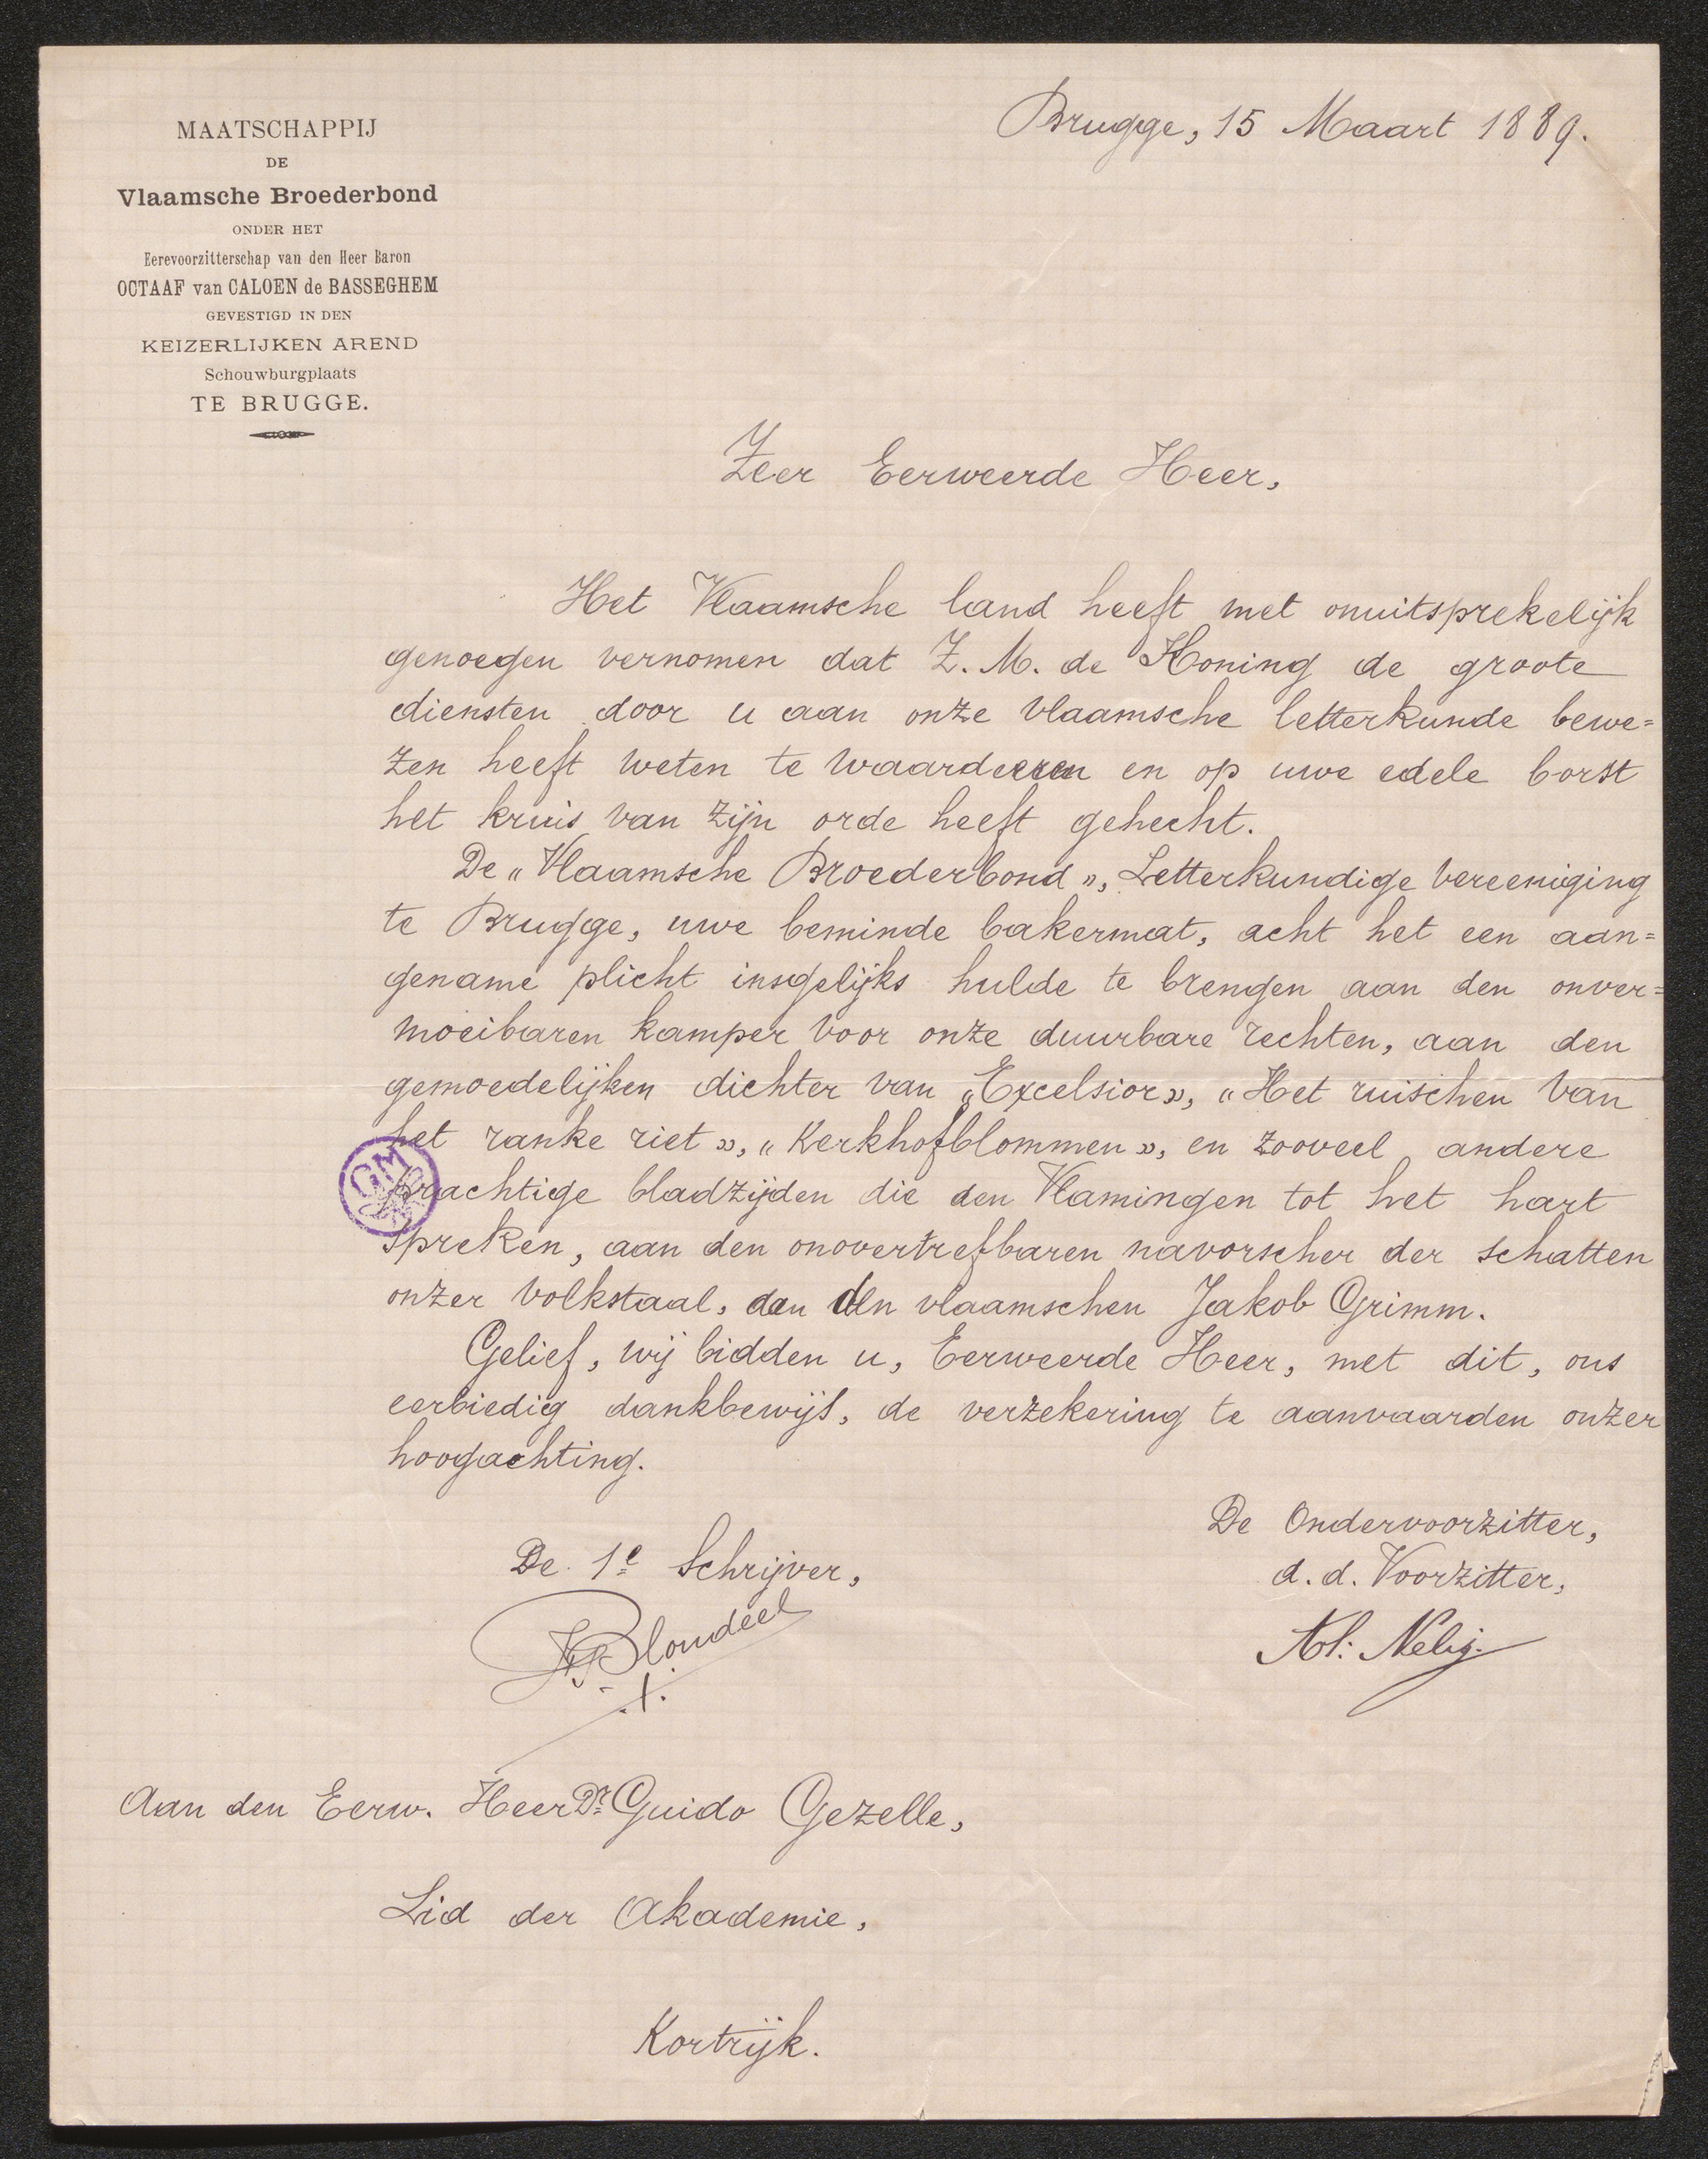 MAATSCHAPPIJ
DE
Vlaamsche Broederbond
ONDER HET
Eerevoorzitterschap van den Heer Baron
OCTAAF van CALOEN de BASSEGHEM
GEVESTIGD IN DEN
KEIZERLIJKEN AREND
Schouwburgplaats
TE BRUGGE.
Brugge, 15 Maart 1889.
Zeer Eerweerde Heer,
Het Vlaamsche land heeft met onuitsprekelijk
genoegen vernomen dat Z. M. de Koning de groote
diensten door u aan onze vlaamsche letterkunde bewe=
zen heeft weten te waardeeren en op uwe edele borst
het kruis van zijn orde heeft gehecht.
De "Vlaamsche Broederbond", Letterkundige vereeniging
te Brugge, uwe beminde bakermat, acht het een aan=
gename plicht insgelijks hulde te brengen aan den onver=
moeibaren kamper voor onze duurbare rechten, aan den
gemoedelijken dichter van "Excelsior", "Het ruischen van
het ranke riet", "Kerkhofblommen", en zooveel andere
prachtige bladzijden die den Vlamingen tot het hart
spreken, aan den onovertrefbaren navorscher der schatten
onzer volkstaal, den vlaamschen Jakob Grimm.
Gelief, wij bidden u, Eerweerde Heer, met dit, ons
eerbiedig dankbewijs, de verzekering te aanvaarden onzer
hoogachting.
De Ondervoorzitter,
d. d. Voorzitter,
De 1e Schrijver,
Blondeel
Aan den Eerw. Heer Dr Guido Gezelle,
Lid der Akademie,
Kortrijk.
GM